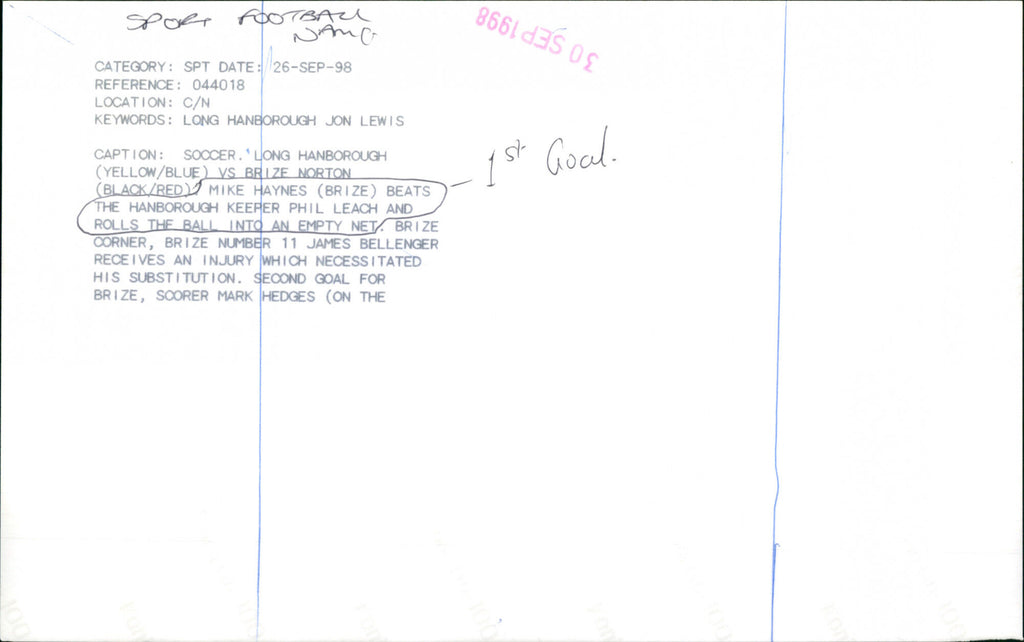 SPORT FOOTBALL
30 SEP 1998
CATEGORY: SPT DATE: 26-SEP-98
REFERENCE: 044018
LOCATION: C/N
KEYWORDS: LONG HANBOROUGH JON LEWIS
CAPTION: SOCCER. LONG HANBOROUGH
(YELLOW/BLUE) VS BRIZE NORTON
(BLACK/RED). MIKE HAYNES (BRIZE) BEATS
THE HANBOROUGH KEEPER PHIL LEACH AND
ROLLS THE BALL INTO AN EMPTY NET. BRIZE
CORNER, BRIZE NUMBER 11 JAMES BELLENGER
RECEIVES AN INJURY WHICH NECESSITATED
HIS SUBSTITUTION. SECOND GOAL FOR
BRIZE, SCORER MARK HEDGES (ON THE
1st Goal.